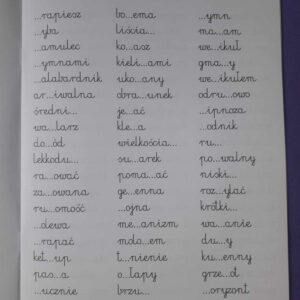 ...rapiesz bo...ema ...ymn
...yba liścia... ma...am
...amulec ko...asz we...ikuł
...ymnami kieli...ami gma...y
...alabardnik uko...any we...ikułem
ar...iwalna obra...unek odru...owo
średni... je...ać ...ipnoza
wa...larz kle...a ...odnik
do...ód wielkościa... ru...
lekkodu... su...arek po...walny
ra...ować poma...ać niski...
za...owana ge...enna roz...ylać
ru...omość ...ojna krótki...
...olewa me...anizm wa...anie
...rapać molo...em du...y
ket...up t...nienie ku...enny
pas...a o...łapy grze...ot
...ucznie brzu... ...oryzont